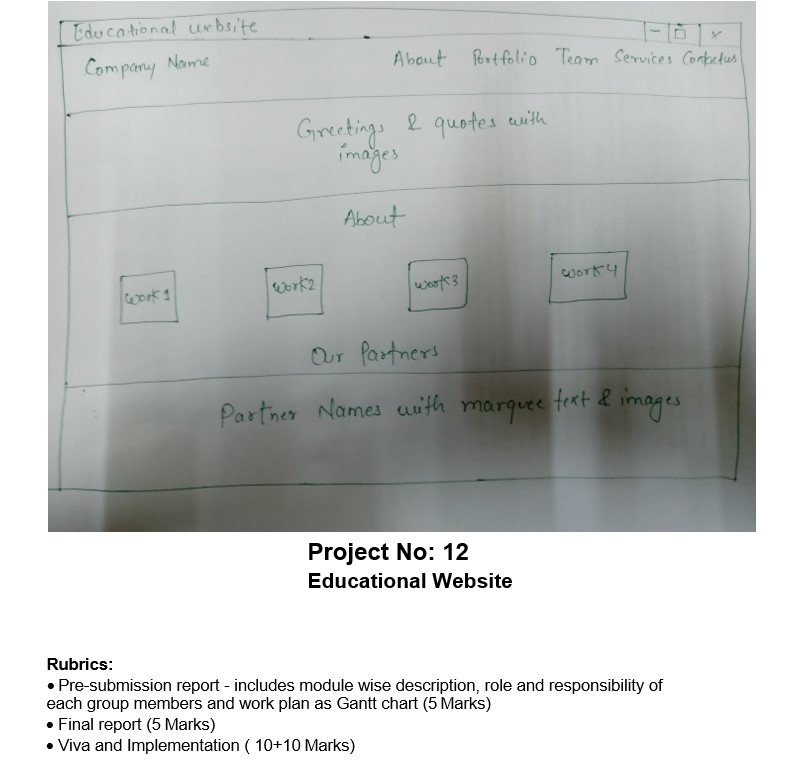 Educational website
Company Name About Portfolio Team Services Contactus
Greetings & quotes with
images
About
work 1 work2 work3 work4
Our Partners
Partner Names with marquee text & images
Project No: 12
Educational Website
Rubrics:
• Pre-submission report - includes module wise description, role and responsibility of
each group members and work plan as Gantt chart (5 Marks)
• Final report (5 Marks)
• Viva and Implementation ( 10+10 Marks)